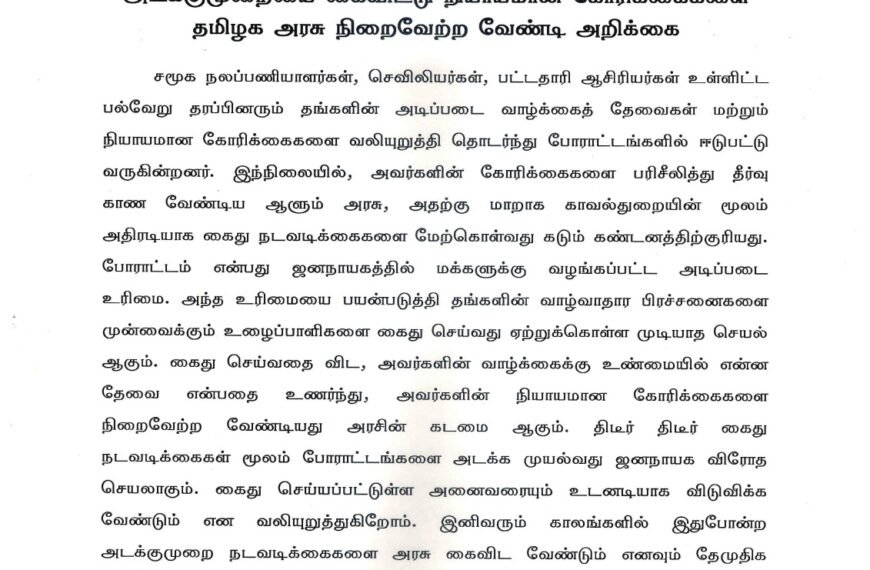 அடக்குமுறையை கைவிட்டு நியாயமான கோரிக்கைகளை
தமிழக அரசு நிறைவேற்ற வேண்டி அறிக்கை
சமூக நலப்பணியாளர்கள், செவிலியர்கள், பட்டதாரி ஆசிரியர்கள் உள்ளிட்ட
பல்வேறு தரப்பினரும் தங்களின் அடிப்படை வாழ்க்கைத் தேவைகள் மற்றும்
நியாயமான கோரிக்கைகளை வலியுறுத்தி தொடர்ந்து போராட்டங்களில் ஈடுபட்டு
வருகின்றனர். இந்நிலையில், அவர்களின் கோரிக்கைகளை பரிசீலித்து தீர்வு
காண வேண்டிய ஆளும் அரசு, அதற்கு மாறாக காவல்துறையின் மூலம்
அதிரடியாக கைது நடவடிக்கைகளை மேற்கொள்வது கடும் கண்டனத்திற்குரியது.
போராட்டம் என்பது ஜனநாயகத்தில் மக்களுக்கு வழங்கப்பட்ட அடிப்படை
உரிமை. அந்த உரிமையை பயன்படுத்தி தங்களின் வாழ்வாதார பிரச்சனைகளை
முன்வைக்கும் உழைப்பாளிகளை கைது செய்வது ஏற்றுக்கொள்ள முடியாத செயல்
ஆகும். கைது செய்வதை விட, அவர்களின் வாழ்க்கைக்கு உண்மையில் என்ன
தேவை என்பதை உணர்ந்து, அவர்களின் நியாயமான கோரிக்கைகளை
நிறைவேற்ற வேண்டியது அரசின் கடமை ஆகும். திடீர் திடீர் கைது
நடவடிக்கைகள் மூலம் போராட்டங்களை அடக்க முயல்வது ஜனநாயக விரோத
செயலாகும். கைது செய்யப்பட்டுள்ள அனைவரையும் உடனடியாக விடுவிக்க
வேண்டும் என வலியுறுத்துகிறோம். இனிவரும் காலங்களில் இதுபோன்ற
அடக்குமுறை நடவடிக்கைகளை அரசு கைவிட வேண்டும் எனவும் தேமுதிக